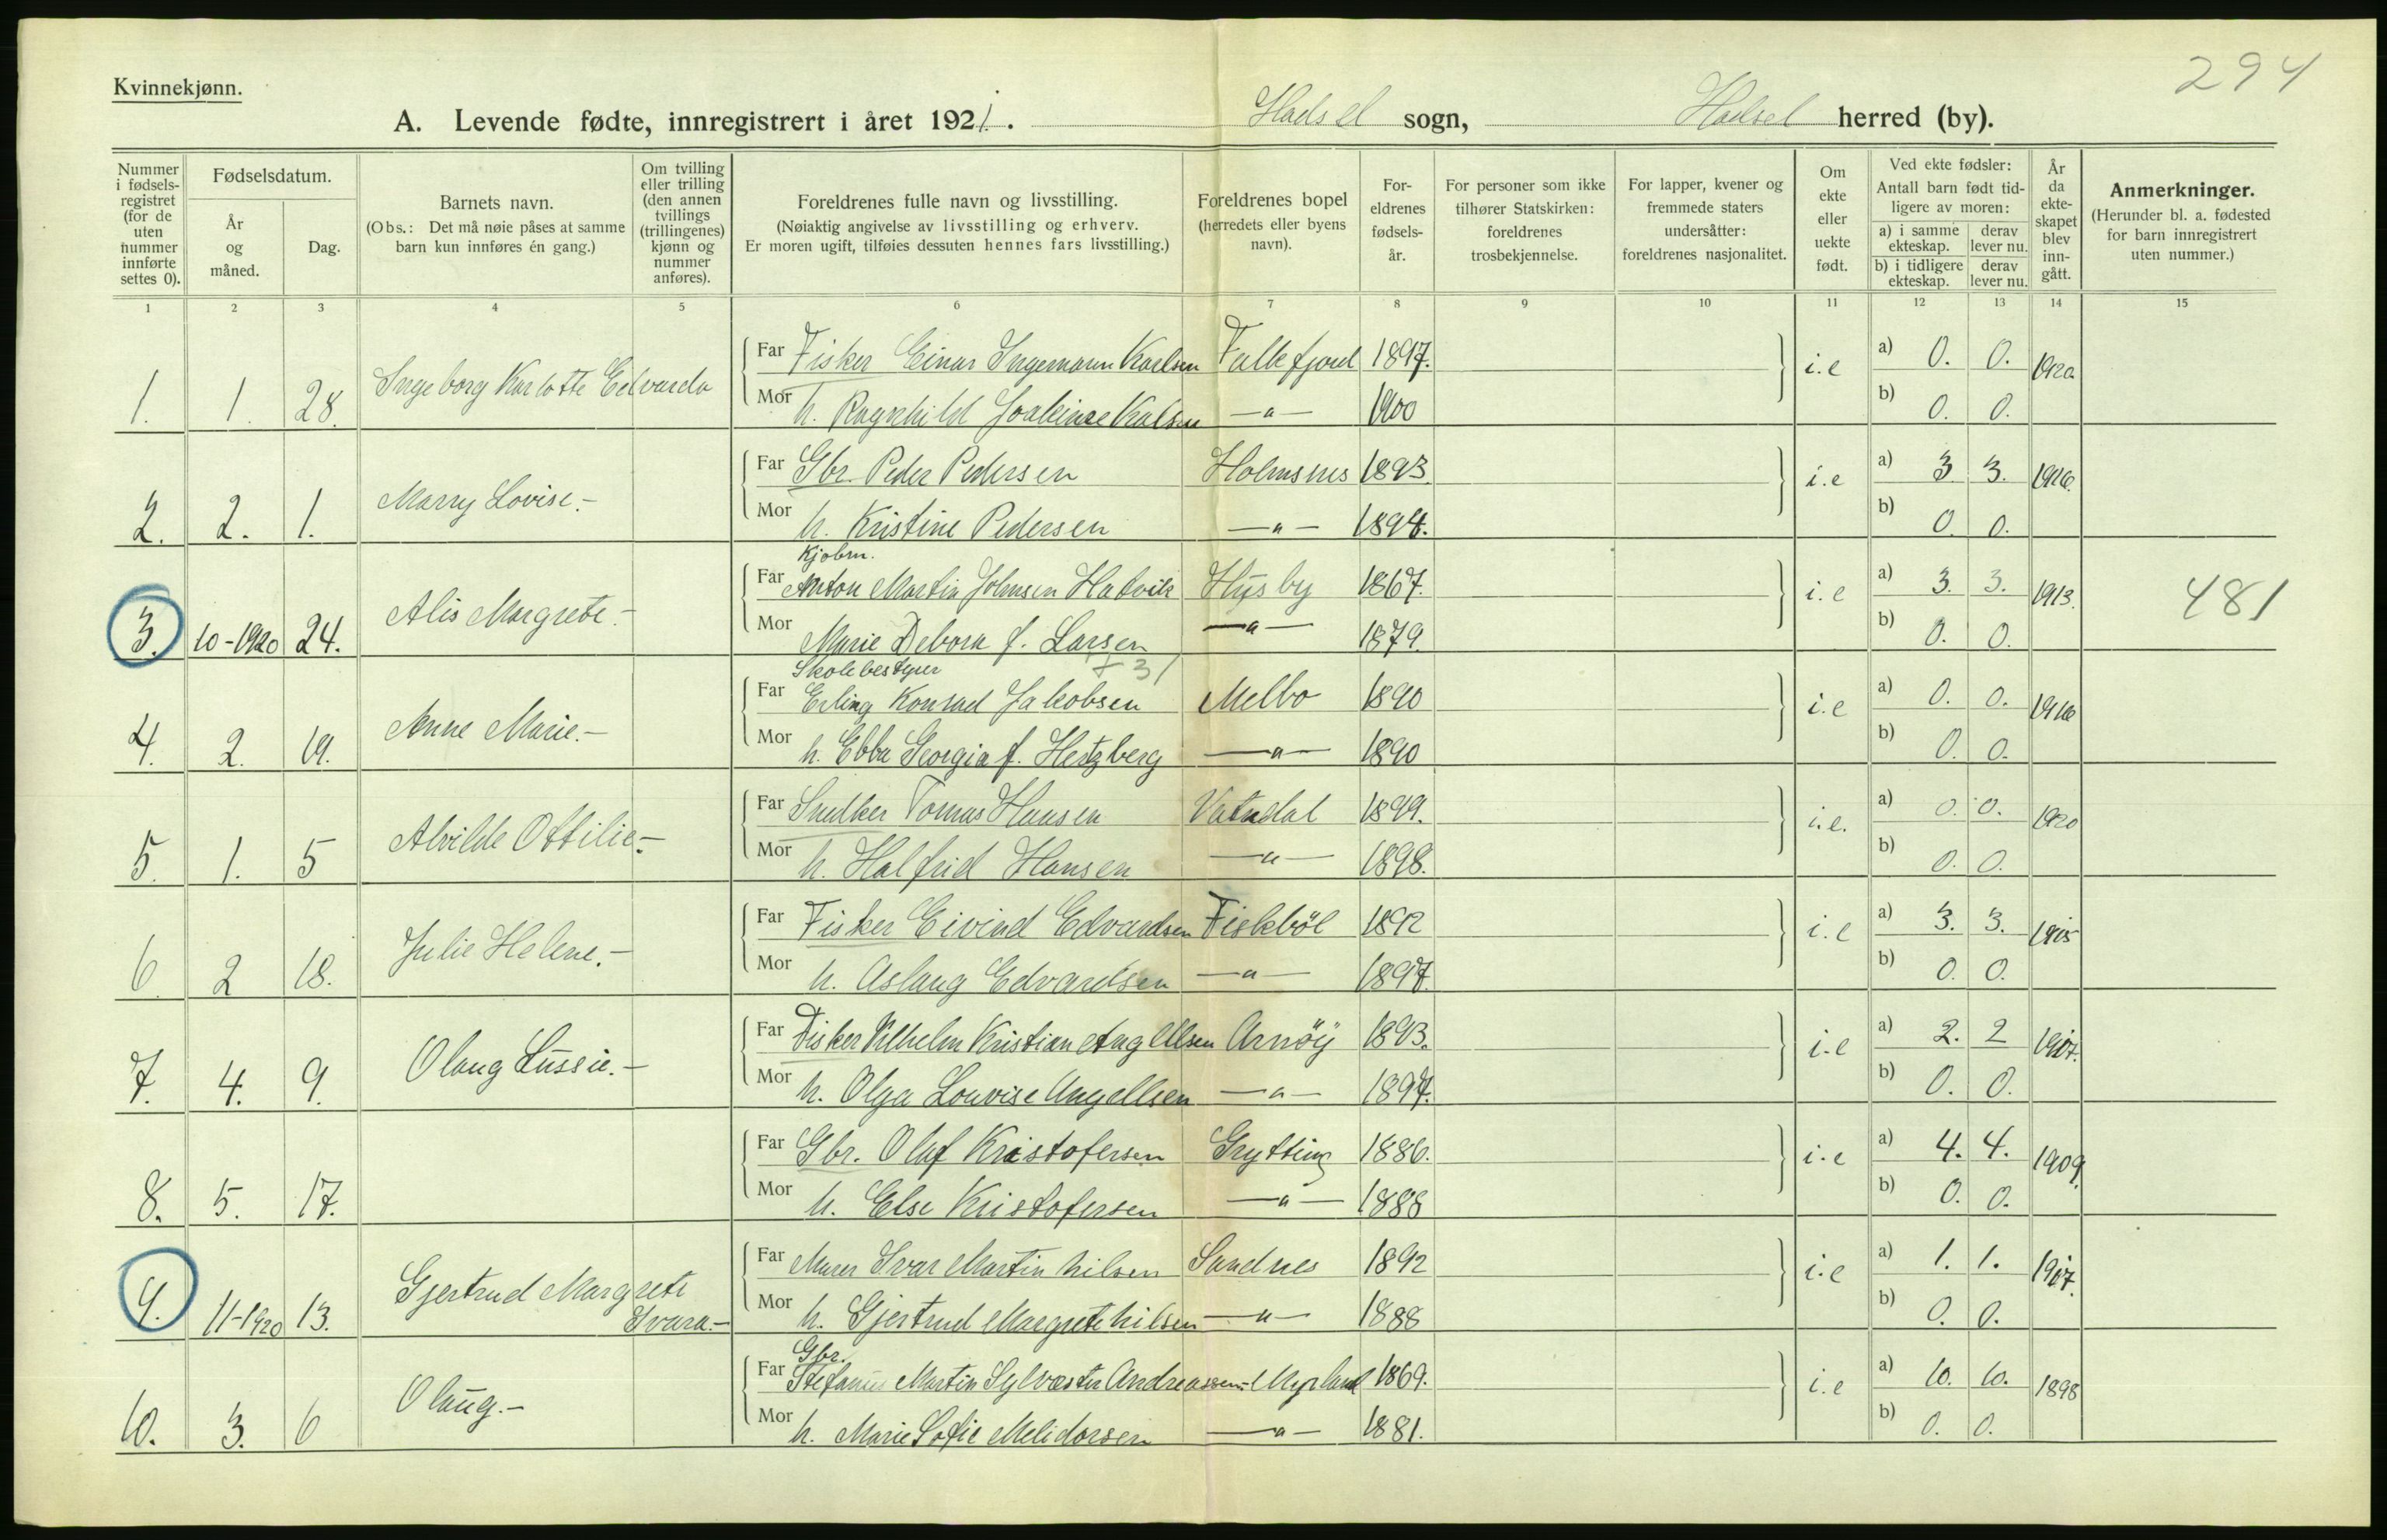 294
Kvinnekjønn.
A. Levende fødte, innregistrert i året 1921. Hadsel sogn, Hadsel herred (by).
Nummer i fødsels-registret (for de uten nummer innførte settes 0).
Fødselsdatum.
År og måned.
Dag.
Barnets navn.
(Obs.: Det må nøie påses at samme barn kun innføres én gang.)
Om tvilling eller trilling (den annen tvillings (trillingenes) kjønn og nummer anføres).
Foreldrenes fulle navn og livsstilling.
(Nøiaktig angivelse av livsstilling og erhverv.
Er moren ugift, tilføies dessuten hennes fars livsstilling.)
Foreldrenes bopel
(herredets eller byens navn).
For-eldrenes fødsels-år.
For personer som ikke tilhører Statskirken: foreldrenes trosbekjennelse.
For lapper, kvener og fremmede staters undersåtter: foreldrenes nasjonalitet.
Om ekte eller uekte født.
Ved ekte fødsler:
Antall barn født tid-ligere av moren:
a) i samme ekteskap. derav lever nu.
b) i tidligere ekteskap. derav lever nu.
År da ekte-skapet blev inn-gått.
Anmerkninger.
(Herunder bl. a. fødested for barn innregistrert uten nummer.)
1 2 3 4 5 6 7 8 9 10 11 12 13 14 15
Far Fisker Einar Ingemann Karlsen Falkefjord 1897. a) 0. 0.
1. 1. 28. Ingeborg Karlotte Edvarda i.e 1920
Mor h. Ragnhild Joakine Kalsen —"— 1900 b) 0. 0.
Far Gbr. Peder Pedersen Holmsnes 1893. a) 3 3.
2. 2. 1. Marry Lovise.- i.e 1916.
Mor h. Kristine Pedersen —"— 1894. b) 0. 0.
Kjøbm.
Far Anton Martin Johnsen Hatvik Husby 1867. a) 3. 3.
3. 10-1920 24. Alis Margrete.- i.e 1913. 481
Mor Marie Debora f. Larsen —"— 1879. b) 0. 0.
Skolebestyrer + 31
Far Erling Konrad Jakobsen Melbo 1890 a) 0. 0.
4. 2. 19. Anne Marie.- i.e 1916
Mor h. Ebba Georgia f. Hertzberg —"— 1890 b) 0. 0.
Far Snedker Tomas Hansen Vatndal 1899. a) 0. 0.
5. 1. 5 Alvilde Ottilie.- i.e. 1920
Mor h. Halfrid Hansen —"— 1898. b) 0. 0.
Far Fisker Eivind Edvardsen Fiskböl 1892 a) 3. 3.
6. 2 18. Julie Helene.- i.e 1915
Mor h. Aslaug Edvardsen —"— 1897. b) 0. 0.
Far Fisker Vilhelm Kristian Angellsen Arnöy 1893. a) 2. 2
7. 4. 9. Olaug Lussie.- i.e 1917.
Mor h. Olga Louvise Angellsen —"— 1897. b) 0. 0.
Far Gbr. Olaf Kristofersen Grytting 1886. a) 4. 4.
8. 5. 17. i.e 1909.
Mor h. Else Kristofersen —"— 1888 b) 0. 0.
Far Murer Ivar Martin Nilsen Sandnes 1892 a) 1. 1.
9. 11-1920 13. Gjertrud Margrete i.e 1917.
Ivara.-
Mor h. Gjertrud Margrete Nilsen —"— 1888 b) 0. 0.
Gbr.
Far Stefanus Martin Sylvester Andreassen- Myrland 1869. a) 10. 10.
10. 3. 6 Olaug.- i.e 1898
Mor h. Marie Sofie Melidorsen —"— 1881. b) 0. 0.